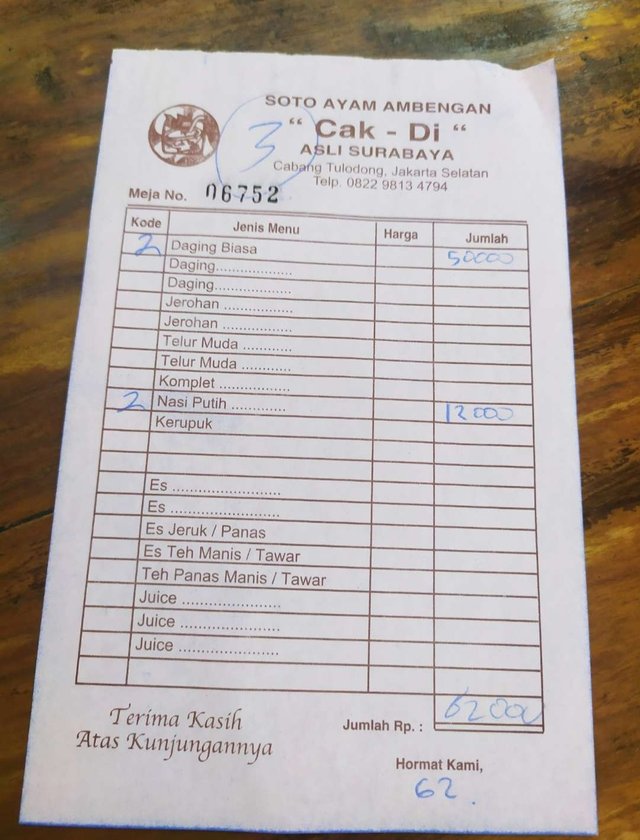 SOTO AYAM AMBENGAN
3
“ Cak - Di “
ASLI SURABAYA
Cabang Tulodong, Jakarta Selatan
Telp. 0822 9813 4794
Meja No. 06752
Kode Jenis Menu Harga Jumlah
2 Daging Biasa 50000
Daging...................
Daging...................
Jerohan .................
Jerohan .................
Telur Muda ............
Telur Muda ............
Komplet .................
2 Nasi Putih ............. 12000
Kerupuk
Es .........................
Es .........................
Es Jeruk / Panas
Es Teh Manis / Tawar
Teh Panas Manis / Tawar
Juice .......................
Juice .......................
Juice .......................
Jumlah Rp. : 62000
Terima Kasih
Atas Kunjungannya
Hormat Kami,
62.